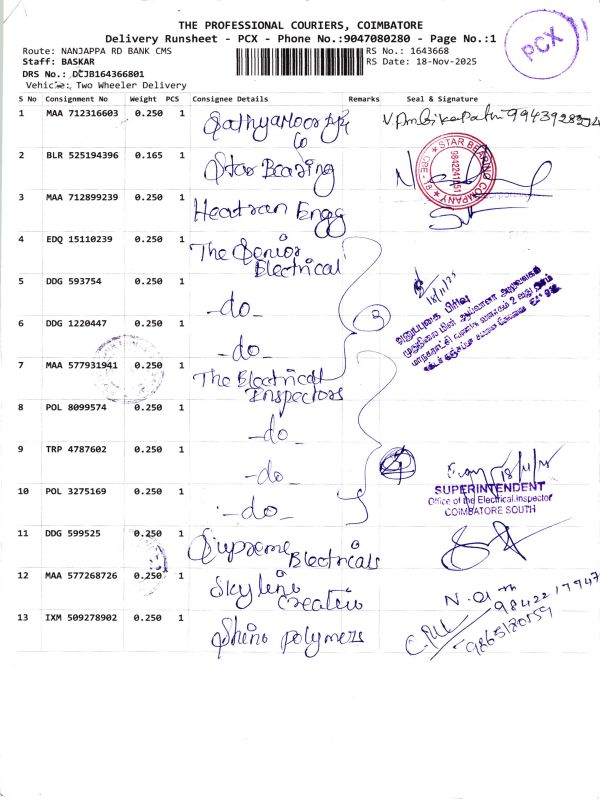 THE PROFESSIONAL COURIERS, COIMBATORE
Delivery Runsheet - PCX - Phone No.:9047080280 - Page No.:1
Route: NANJAPPA RD BANK CMS
RS No.: 1643668
Staff: BASKAR
RS Date: 18-Nov-2025
DRS No.: DCJB164366801
Vehicle: Two Wheeler Delivery
PCX
S No Consignment No Weight PCS Consignee Details Remarks Seal & Signature
1 MAA 712316603 0.250 1
Co
2 BLR 525194396 0.165 1 Star Bearing
STAR BEARING COMPANY
CBE - 18
3 MAA 712899239 0.250 1 Heatran Engg
4 EDQ 15110239 0.250 1 The Senior
Electrical
5 DDG 593754 0.250 1 -do-
18/11/25
6 DDG 1220447 0.250 1 -do-
3
7 MAA 577931941 0.250 1 The Electrical
Inspectors
8 POL 8099574 0.250 1 -do-
9 TRP 4787602 0.250 1 -do-
4
18/11/25
10 POL 3275169 0.250 1 -do-
SUPERINTENDENT
Office of the Electrical Inspector
COIMBATORE SOUTH
11 DDG 599525 0.250 1 Supreme Electricals
12 MAA 577268726 0.250 1 Skyline
Creatio
13 IXM 509278902 0.250 1 Shino polymers
9865180559